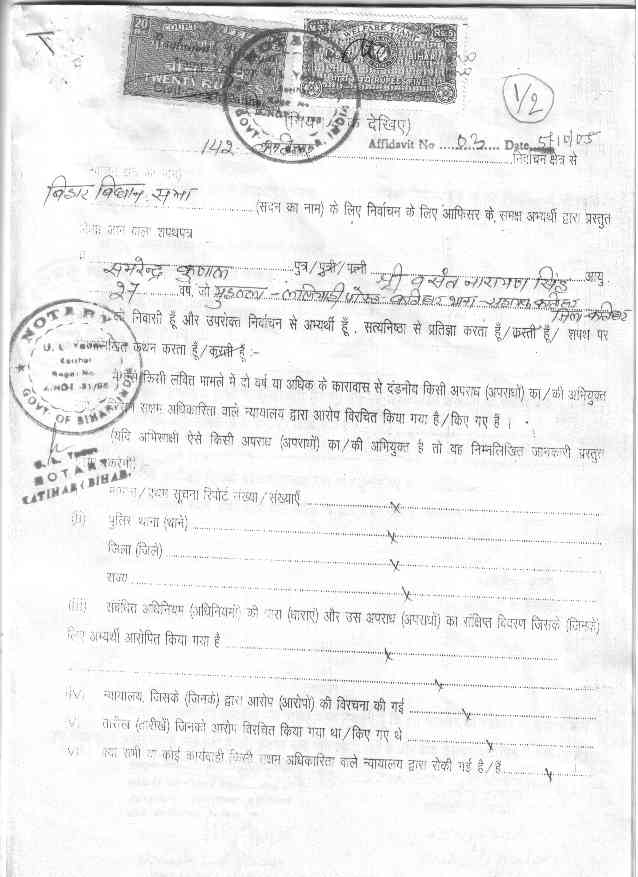 20 COURT
TWENTY RUPEES
WELFARE STAMP Rs 5
BIHAR
NOTARY
GOVT. OF BIHAR, INDIA
1/2
देखिए)
Affidavit No ....03.... Date..5/10/05
142 ..... निर्वाचन क्षेत्र से
बिहार विधान सभा ..... (सदन का नाम) के लिए निर्वाचन के लिए आफिसर के समक्ष अभ्यर्थी द्वारा प्रस्तुत
किया जाने वाला शपथपत्र
समरेन्द्र कुणाल ..... पुत्र/पुत्री/पत्नी श्री वसंत नारायण सिंह आयु
27 वर्ष, जो
जिला-कटिहार
का निवासी हूँ और उपरोक्त निर्वाचन से अभ्यर्थी हूँ, सत्यनिष्ठा से प्रतिज्ञा करता हूँ/करती हूँ/ शपथ पर
कथन करता हूँ/करती हूँ :-
किसी लंबित मामले में दो वर्ष या अधिक के कारावास से दंडनीय किसी अपराध (अपराधों) का/की अभियुक्त
सक्षम अधिकारिता वाले न्यायालय द्वारा आरोप विरचित किया गया है/किए गए हैं ।
(यदि अभिसाक्षी ऐसे किसी अपराध (अपराधों) का/की अभियुक्त है तो वह निम्नलिखित जानकारी प्रस्तुत
करेगा)
NOTARY
U. L. Yadav
Katihar
Regd. No.
GOVT. OF BIHAR INDIA
U. L. Yadav
NOTARY
KATIHAR (BIHAR)
प्रथम सूचना रिपोर्ट संख्या/संख्याएँ ..... x
(ii) पुलिस थाना (थाने) ..... x
जिला (जिले) ..... x
राज्य ..... x
(iii) संबंधित अधिनियम (अधिनियमों) की धारा (धाराएं) और उस अपराध (अपराधों) का संक्षिप्त विवरण जिसके (जिनके)
लिए अभ्यर्थी आरोपित किया गया है ..... x
..... x
iv. न्यायालय, जिसके (जिनके) द्वारा आरोप (आरोपों) की विरचना की गई ..... x
v. तारीख (तारीखें) जिनको आरोप विरचित किया गया था/किए गए थे ..... x
vi. क्या सभी या कोई कार्यवाही किसी सक्षम अधिकारिता वाले न्यायालय द्वारा रोकी गई है/हैं ..... x